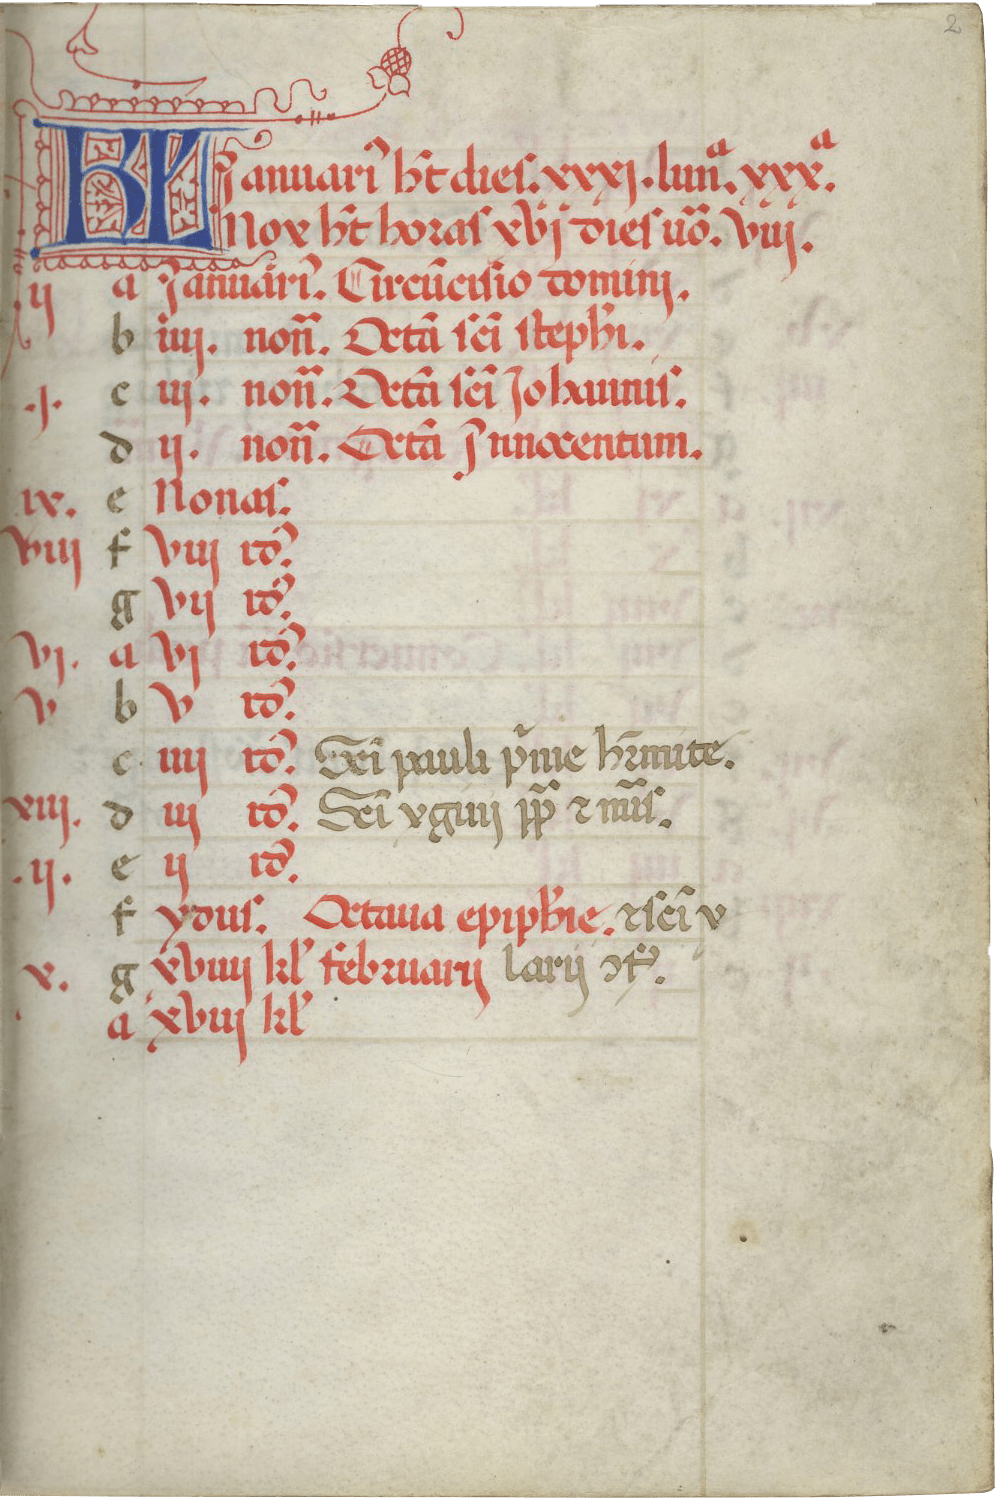 2
KL Januarı̉ h̄t dies. xxxj. lun̄ᵃ. xxx.ᵃ
Nox h̄t horas xvj dies uō. viij.
ij a Januārı̉. Circūcisio domini.
b iiij. non̄. Octā sc̄i steph̄i.
.j. c iij. non̄. Octā sc̄i Johannis.
d ij. non̄. Octā Innocentum.
ix. e Nonas.
viij f viij id̉.
g vij id̉.
vj. a vj id̉.
v b v id̉.
c iiij id̉. Sc̄i pauli p̄me h̄rmite.
xiij. d iij id̉. Sc̄i yginij p̄p̄ ⁊ m̄ris.
.ij. e ij id̉.
f ydus. Octaua epiph̄ie. ⁊ sc̄i y
x. g xviiij kl̉ februarij larij ɔf̉.
a xviij kl̉